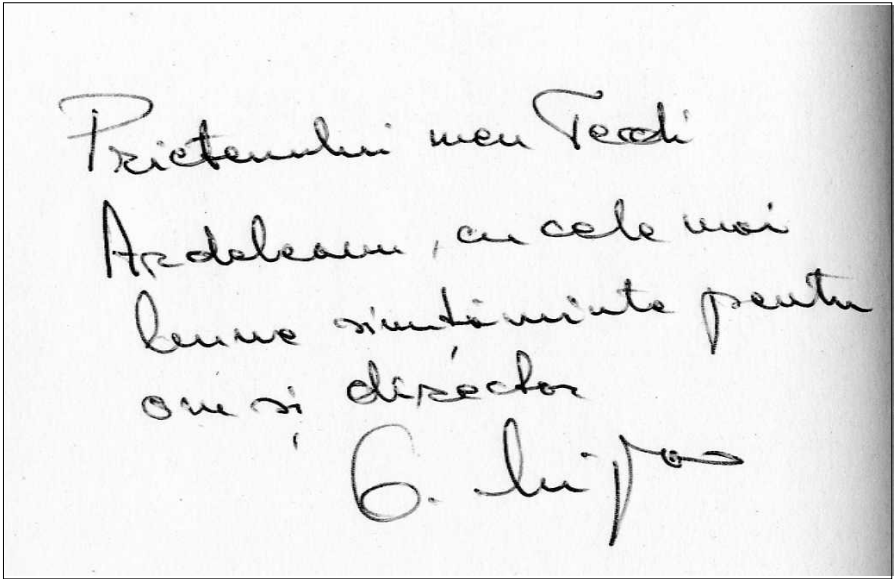 Prietenului meu Teodi
Ardeleanu, cu cele mai
bune simțăminte pentru
om și director
G.